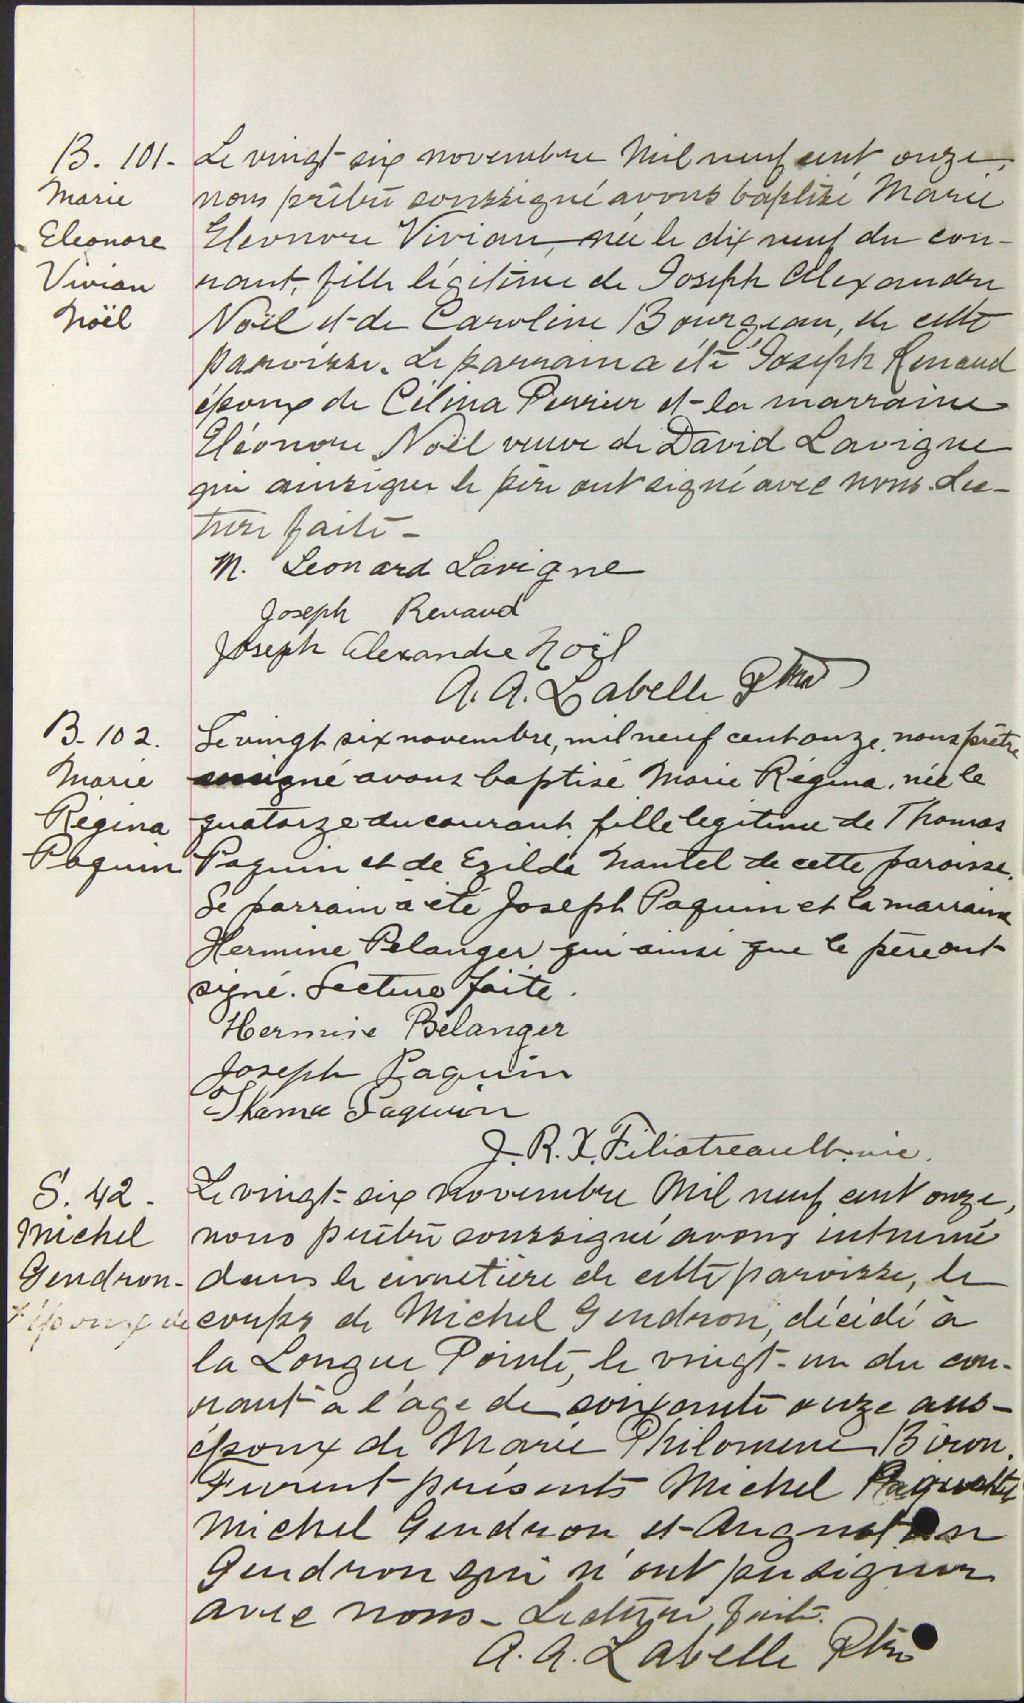 B. 101-
Marie
Eleonore
Vivian
Noël
Le vingt-six novembre Mil neuf cent onze,
nous prêtre soussigné avons baptisé Marie
Eleonore Vivian, née le dix neuf du cou-
rant, fille légitime de Joseph Alexandre
Noël et de Caroline Bourgeau, de cette
paroisse. Le parrain a été Joseph Renaud
époux de Célina Perrier et la marraine
Eléonore Noël veuve de David Lavigne
qui ainsi que le père ont signé avec nous. Lec-
ture faite -
M. Leonard Lavigne
Joseph Renaud
Joseph Alexandre Noël
A. A. Labelle Ptre
B. 102.
Marie
Régina
Paquin
Le vingt six novembre, mil neuf cent onze, nous prêtre
soussigné avons baptisé Marie Régina, née le
quatorze du courant, fille legitime de Thomas
Paquin et de Ezilda Nantel de cette paroisse.
Le parrain a été Joseph Paquin et la marraine
Hermine Belanger qui ainsi que le père ont
signé. Lecture faite.
Hermine Bélanger
Joseph Paquin
Thoma Paquin
J. R. X. Filiatreault. vic.
S. 42-
Michel
Gendron-
époux de
Le vingt-six novembre Mil neuf cent onze,
nous prêtre soussigné avons inhumé
dans le cimetière de cette paroisse, le
corps de Michel Gendron, décédé à
la Longue Pointe, le vingt-un du cou-
rant à l'âge de soixante onze ans-
époux de Marie Philomène Biron.
Furent présents Michel Paquette
Michel Gendron et Augustin
Gendron qui n'ont pu signer
avec nous- Lecture faite.
A. A. Labelle Ptre